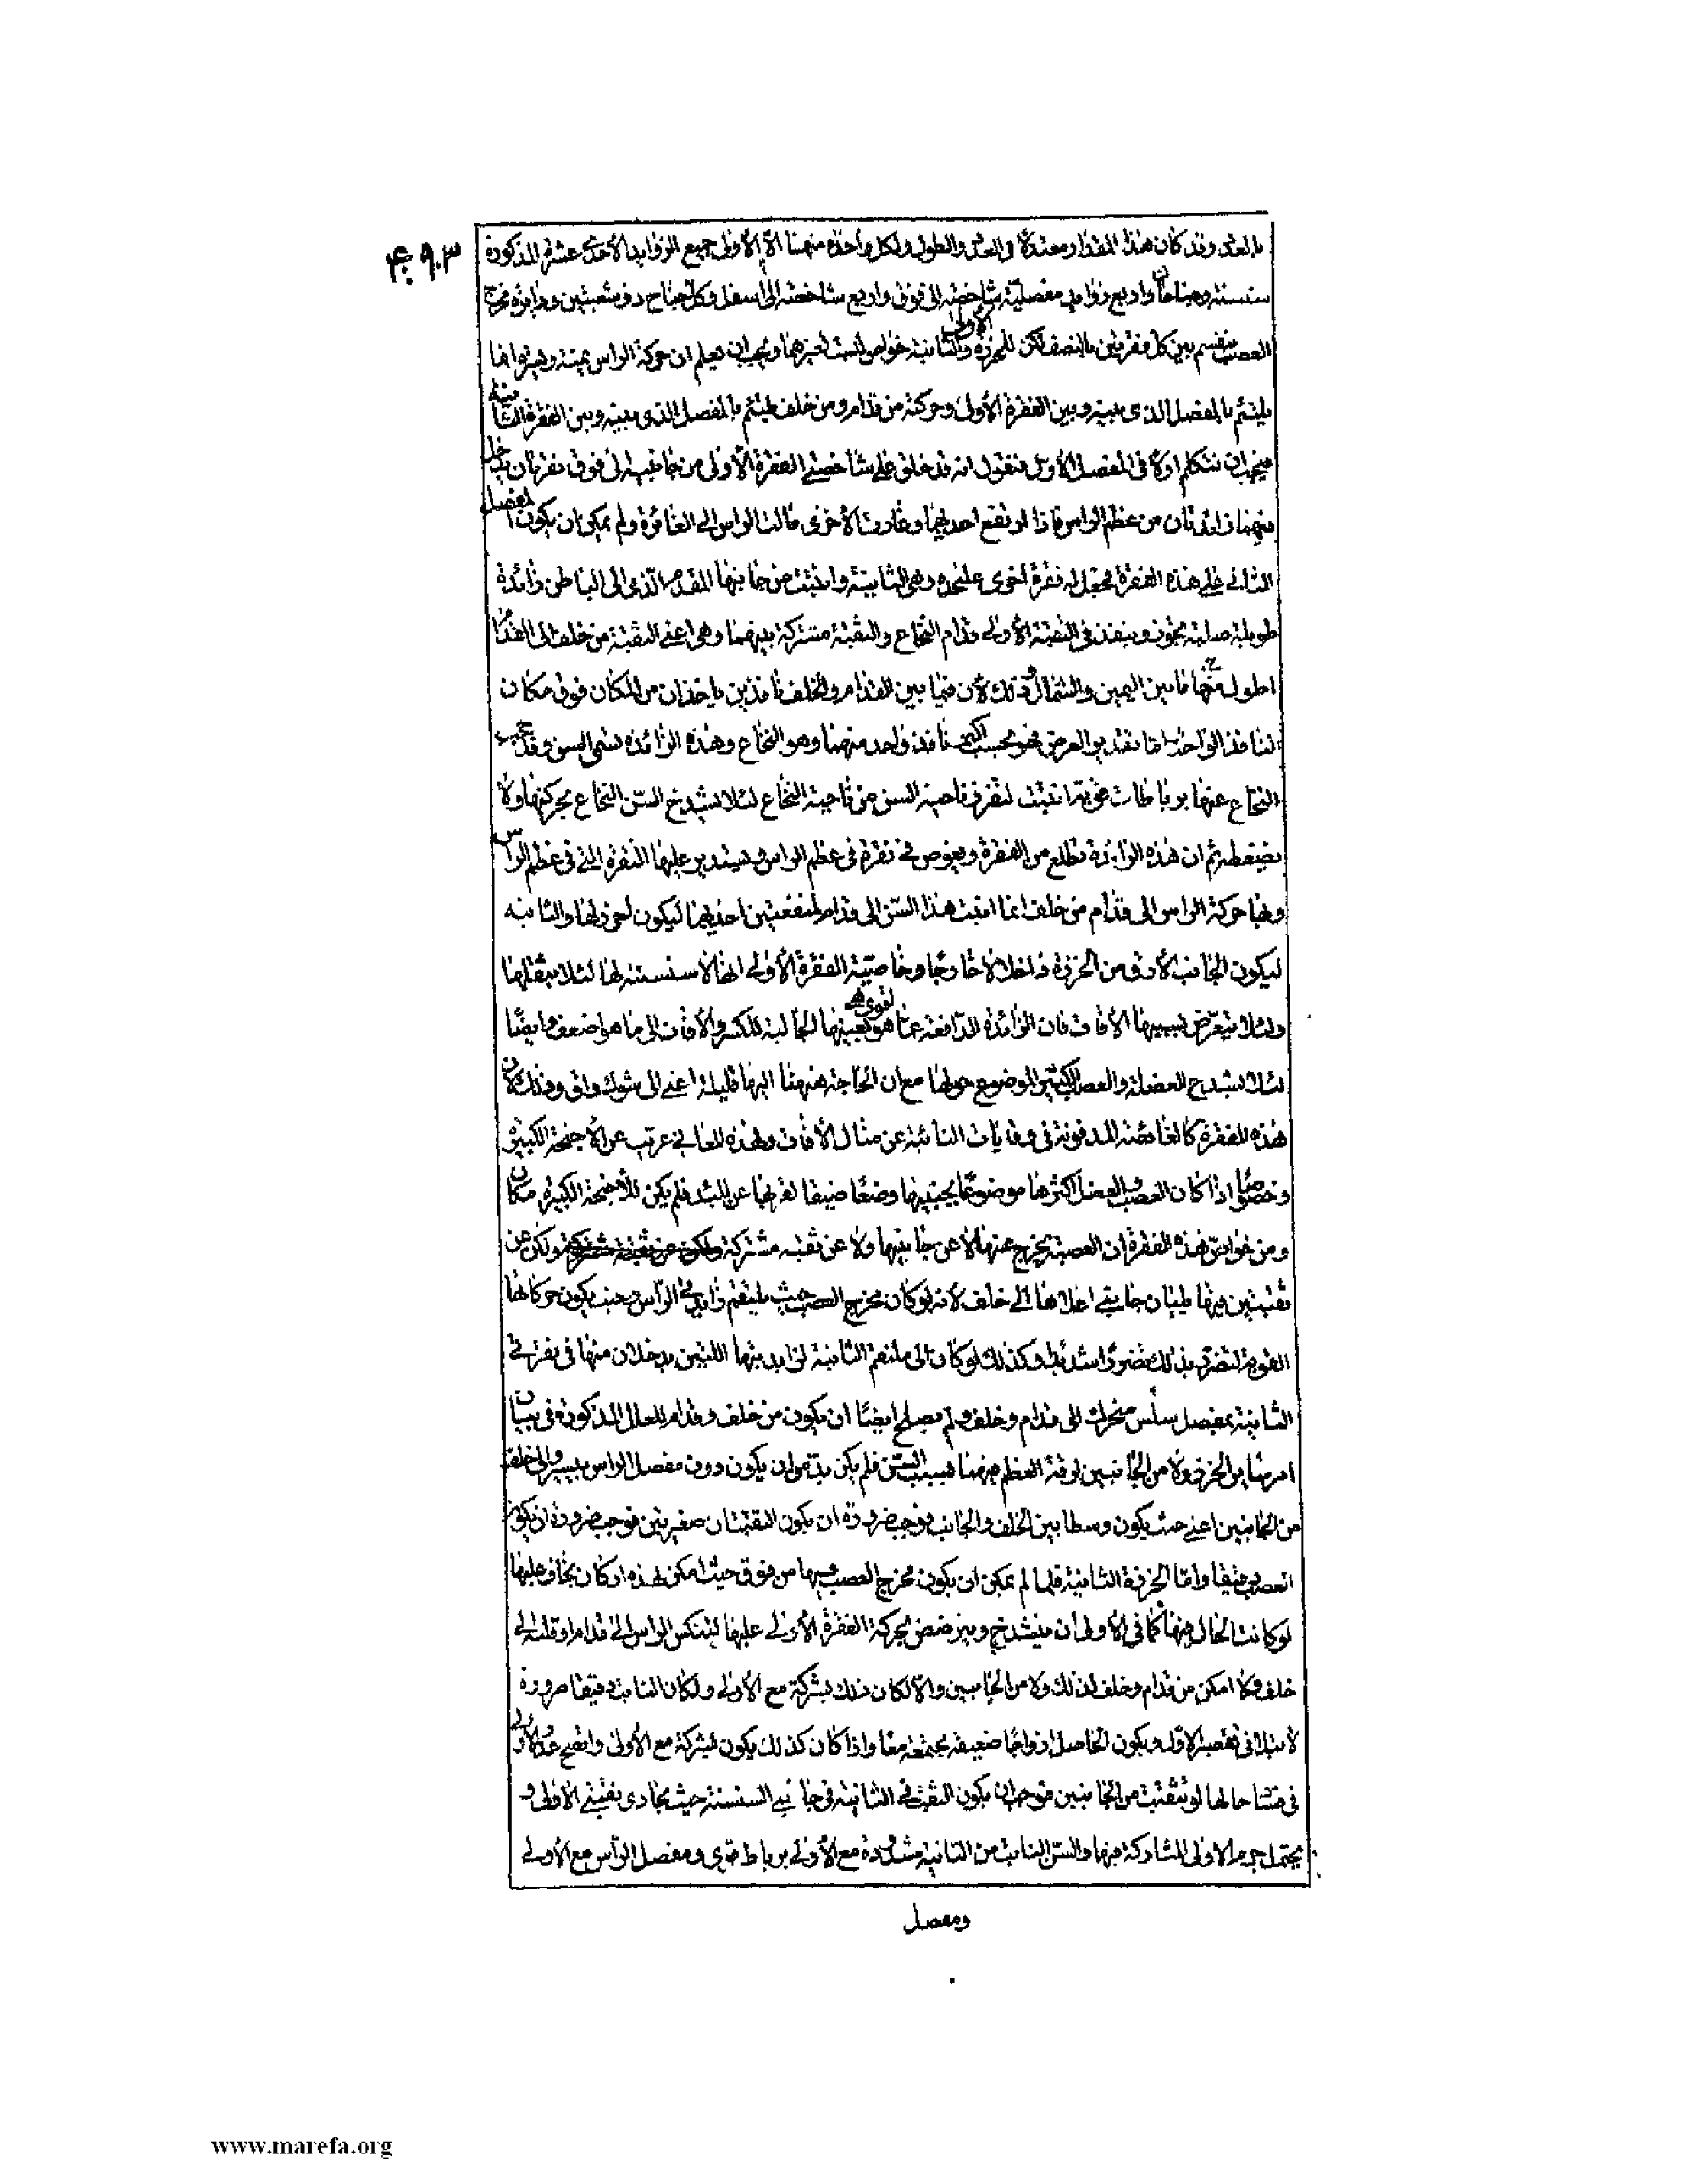 ٩٠٣
بالعدد وقد كان هذا المقدار معتدلا في العرض والطول ولكل واحدة منهما الا الأولى جميع الزوايد الأحدى عشرة المذكورة
سنسنة وجناحان واربع زوايد مفصلية شاخصة الى فوق واربع شاخصة الى اسفل وكل جناح ذو شعبتين ودايرة مخرج
العصب ينقسم بين كل فقرتين بالنصف لكن للخرزة الأولى والثانية خواص ليست لغيرهما ويجب ان يعلم ان حركة الراس يمنة ويسرة انما
يلتئم بالمفصل الذى بينه وبين الفقرة الأولى وحركته من قدام ومن خلف يلتئم بالمفصل الذى بينه وبين الفقرة الثانية
فيجب ان نتكلم اولا فى المفصل الأول فنقول انه قد خلق على شاخصتى الفقرة الأولى من جانبيها الى فوق نقرتان يدخل
فيهما زائدتان من عظم الراس فاذا ارتفع احديهما وغارت الأخرى مالت الراس الى الغائرة ولم يمكن ان يكون المفصل
الثانى على هذه الفقرة فجعل له فقرة اخرى عليحده وهى الثانية وانبتت من جانبها المقدم الذى الى الباطن زائدة
طويلة صلبة تجوز وينفذ فى الثقبة الأولى قدام النخاع والثقبة مشتركة بينهما وهى اعنى الثقبة من خلف الى القدام
اطول منها ما بين اليمين والشمال وذلك لأن فيما بين القدام والخلف نافذين ياخذان من المكان فوق مكان
النافذ الواحد واما تقدير العرض فهو بحسب اكبر نافذ واحد منهما وهو النخاع وهذه الزائدة تسمى السن وقد حجب
النخاع عنها برباطات قوية انبتت لتفرز ناحية السن من ناحية النخاع لئلا يشدخ السن النخاع بحركتها ولا
يضغطه ثم ان هذه الزايدة تطلع من الفقرة ويغوص فى نقرة فى عظم الراس ويستدير عليها النقرة التى فى عظم الراس
وبها حركة الراس الى قدام من خلف انما انبت هذا السن الى قدام لمنفعتين احديهما ليكون احرز لها والثانيه
ليكون الجانب الأدق من الخرزة داخلا لا خارجا وخاصية الفقرة الأولى انها لا سنسنة لها لئلا يثقلها
ولئلا يتعرض بسببها الأفات فان الزائدة الدافعة عما هو اقوى هى بعينها الجالبة للكسر والأفات الى ما هو اضعف وايضا
لئلا يشدخ العضلة والعصب الكثير الموضوع حولها مع ان الحاجة ههنا اليها قليلة اعنى الى شوك واقى وذلك لان
هذه الفقرة كالغائصة المدفونة فى وقايات النائية عن منال الأفات ولهذه المعانى عريت عن الأجنحة الكبيرة
وخصوصا اذا كان العصب والعضل اكثرها موضوعا بجنبيها وضعا ضيقا لقربها عن المبدء فلم يكن للأجنحة الكبيرة مكان
ومن خواص هذه الفقرة ان العصبة يخرج عنها لا عن جانبيها ولا عن ثقبه مشتركة ولكن عن
ثقبتين فيها يليان جانبى اعلاها الى خلف لأنه لو كان مخرج العصب حيث يلتقم زايدتى الراس وحيث يكون حركاتها
القوية لتضرر بذلك تضررا شديدا وكذلك لو كان الى ملتقم الثانية لزايديتها اللتين يدخلان منها فى نقرتى
الثانية بمفصل سلس متحرك الى قدام وخلف ولم يصلح ايضا ان يكون من خلف وقدام للعلل المذكورة فى بيان
امر سائر الخرز ولا من الجانبين لرقة العظم فيهما بسبب السن فلم يكن بد من ان يكون دون مفصل الراس بيسير والى خلف
من الجانبين اعنى حيث يكون وسطا بين الخلف والجانب فوجب ضرورة ان يكون الثقبتان صغيرتين فوجب ضرورة ان يكون
العصب دقيقا واما الخرزة الثانية فلما لم يمكن ان يكون مخرج العصب فيها من فوق حيث امكن لهذه اذ كان يخاف عليها
لو كانت الحال فيها كما فى الأولى ان ينشدخ ويترضض بحركة الفقرة الأولى عليها لتنكس الراس الى قدام او قلبه الى
خلف ولا امكن من قدام وخلف لذلك ولا من الجانبين والا لكان ذلك بشركة مع الأولى ولكان النابت دقيقا ضرورة
لا يتلافى تقصير الاول ويكون الحاصل ازواجا ضعيفة مجتمعة معا واذا كان كذلك يكون بشركة مع الأولى واتضح عذر الاولى
فى فساد حالها لو ثقبت من الجانبين فوجب ان يكون الثقب فى الثانية فى جانبى السنسنة حيث يحاذى ثقبتى الاولى و
يحتمل جرم الاولى المشاركة فيها والسن النابت من الثانية مشدودة مع الأولى برباط قوى ومفصل الراس مع الأولى
ومفصل
www.marefa.org